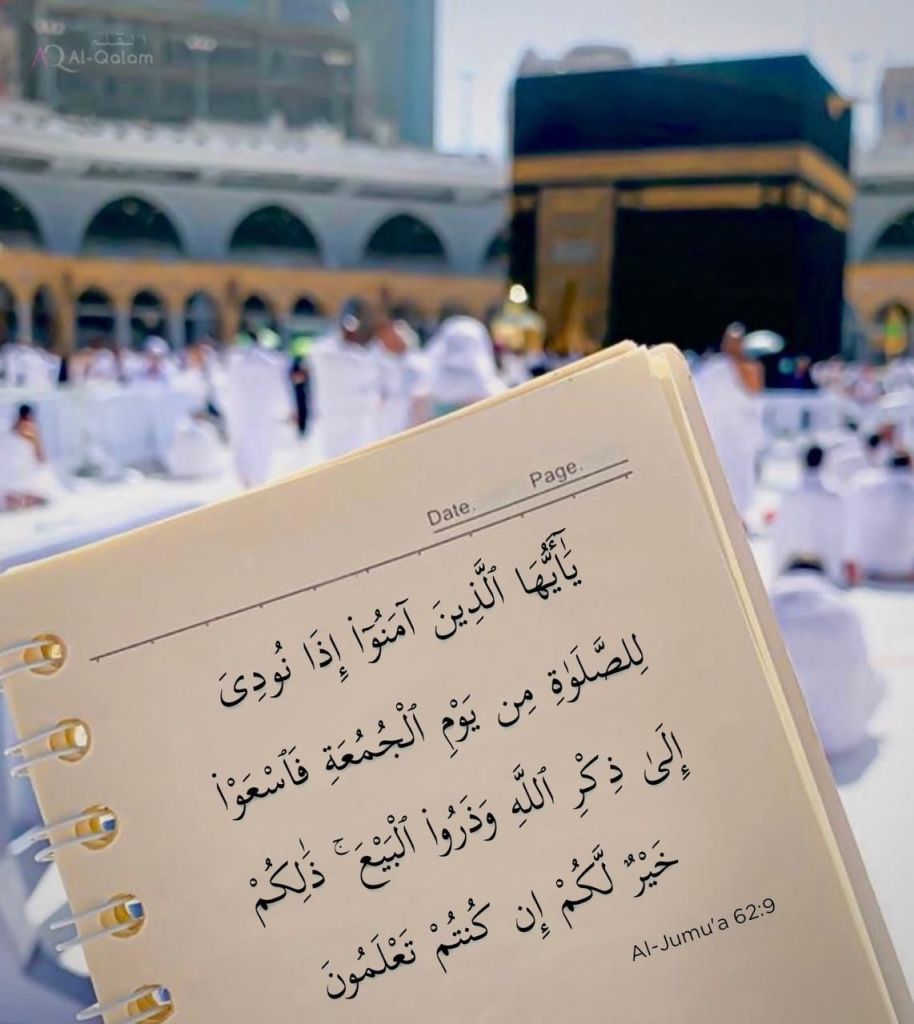 القلم
AQ Al-Qalam
Date. Page.
يَٰٓأَيُّهَا ٱلَّذِينَ آمَنُوٓا۟ إِذَا نُودِىَ
لِلصَّلَوٰةِ مِن يَوْمِ ٱلْجُمُعَةِ فَٱسْعَوْا۟
إِلَىٰ ذِكْرِ ٱللَّهِ وَذَرُوا۟ ٱلْبَيْعَ ۚ ذَٰلِكُمْ
خَيْرٌ لَّكُمْ إِن كُنتُمْ تَعْلَمُونَ
Al-Jumu'a 62:9